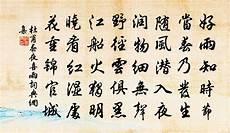 好雨知時節
當春乃發生
隨風潛入夜
潤物細無聲
野徑雲俱黑
江船火獨明
曉看紅濕處
花重錦官城
杜甫春夜喜雨詞典網
集